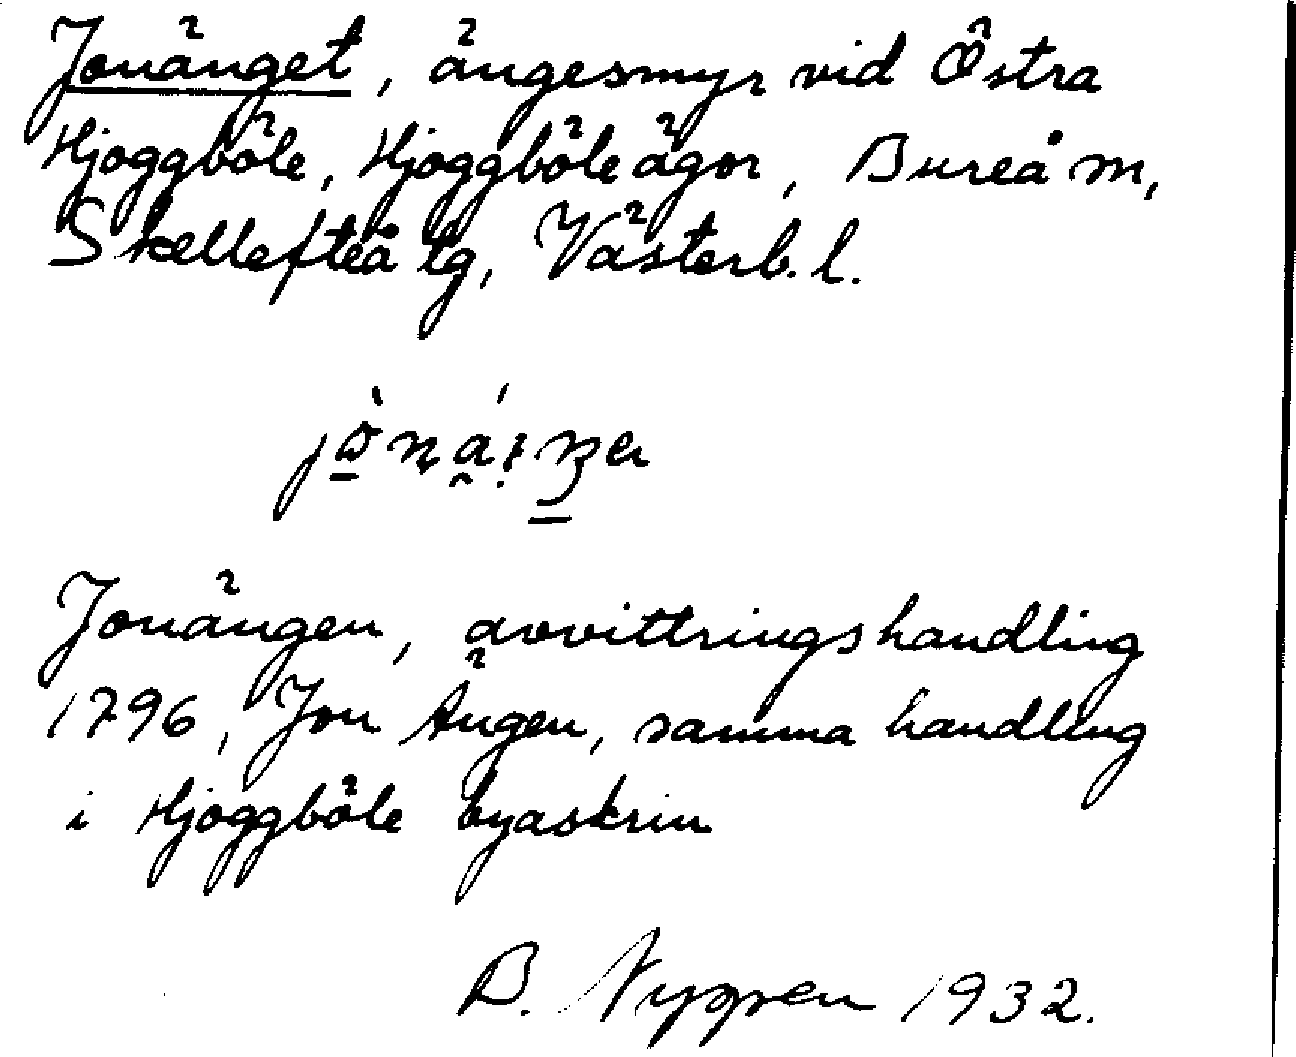 Jonänget, ängesmyr vid Östra
Hjoggböle, Hjoggböle ägor, Bureå m,
Skellefteå tg, Västerb. l.
Jonängen, avvittringshandling
1796, Jon Ängen, samma handling
i Hjoggböle byaskrin
B. Nygren 1932.